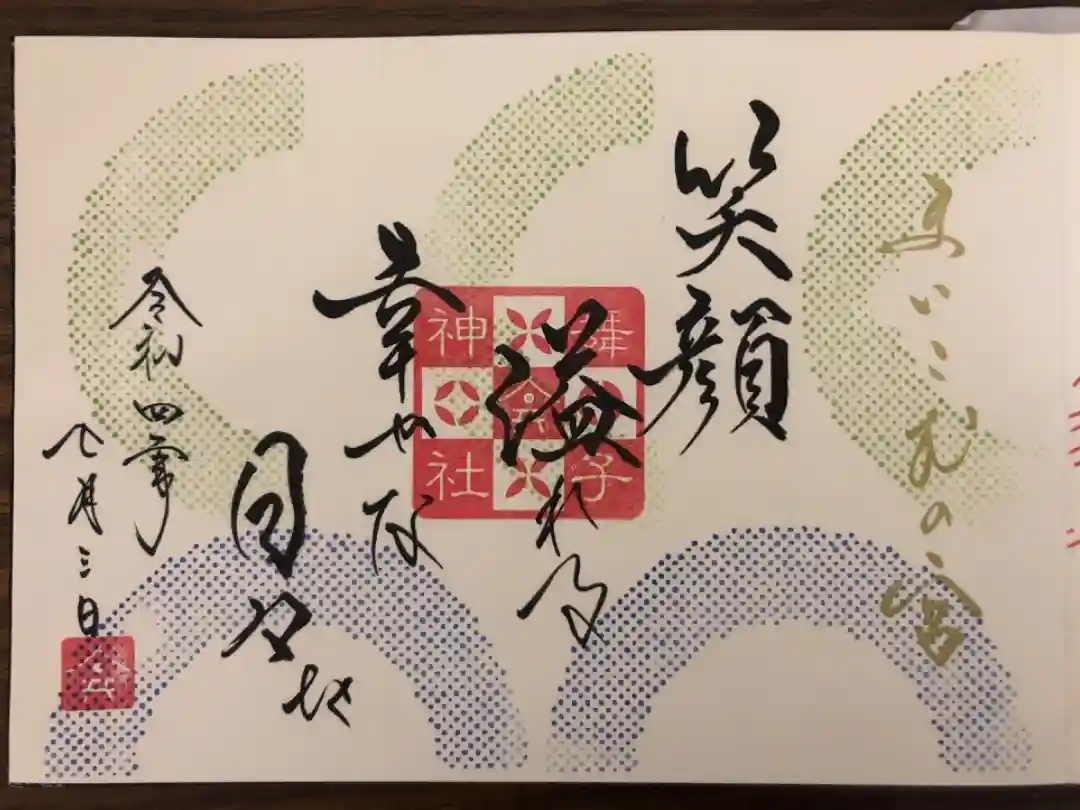 まいこの宮
笑顔
溢れる
幸せな
日々を
舞子
六
神社
令和四年
七月三日